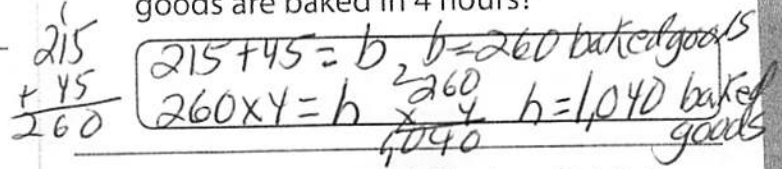 goods are baked in 4 hours?
1
215
+ 45
260
215+45=b, b=260 baked goods
260x4=h
2
260
x 4
1,040
h=1,040 baked
goods